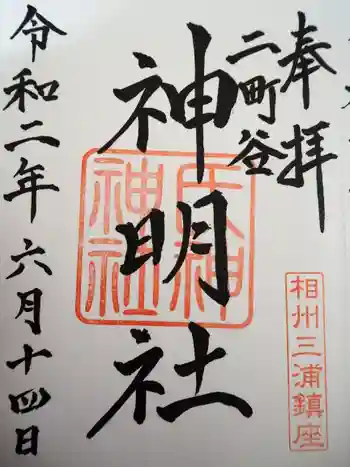 奉拝
二町谷
神明社
令和二年六月十四日
相州三浦鎮座
神社